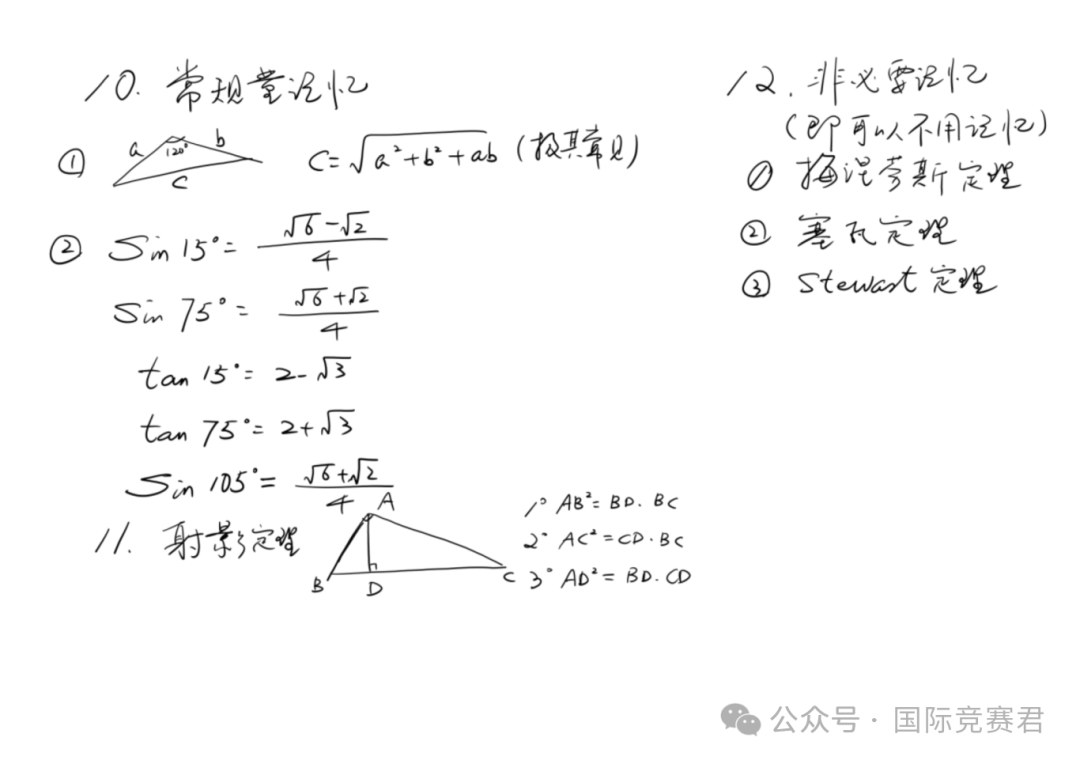 10. 常规堂记忆
① a 120° b c C=√a²+b²+ab (极其常见)
② Sin 15°= √6-√2/4
Sin 75°= √6+√2/4
tan 15°= 2-√3
tan 75°= 2+√3
Sin 105°= √6+√2/4
11. 射影定理
A B D C
1° AB²=BD·BC
2° AC²=CD·BC
3° AD²= BD·CD
12. 非必要记忆
(即可以不用记忆)
① 梅涅劳斯定理
② 塞瓦定理
③ Stewart 定理
公众号·国际竞赛君